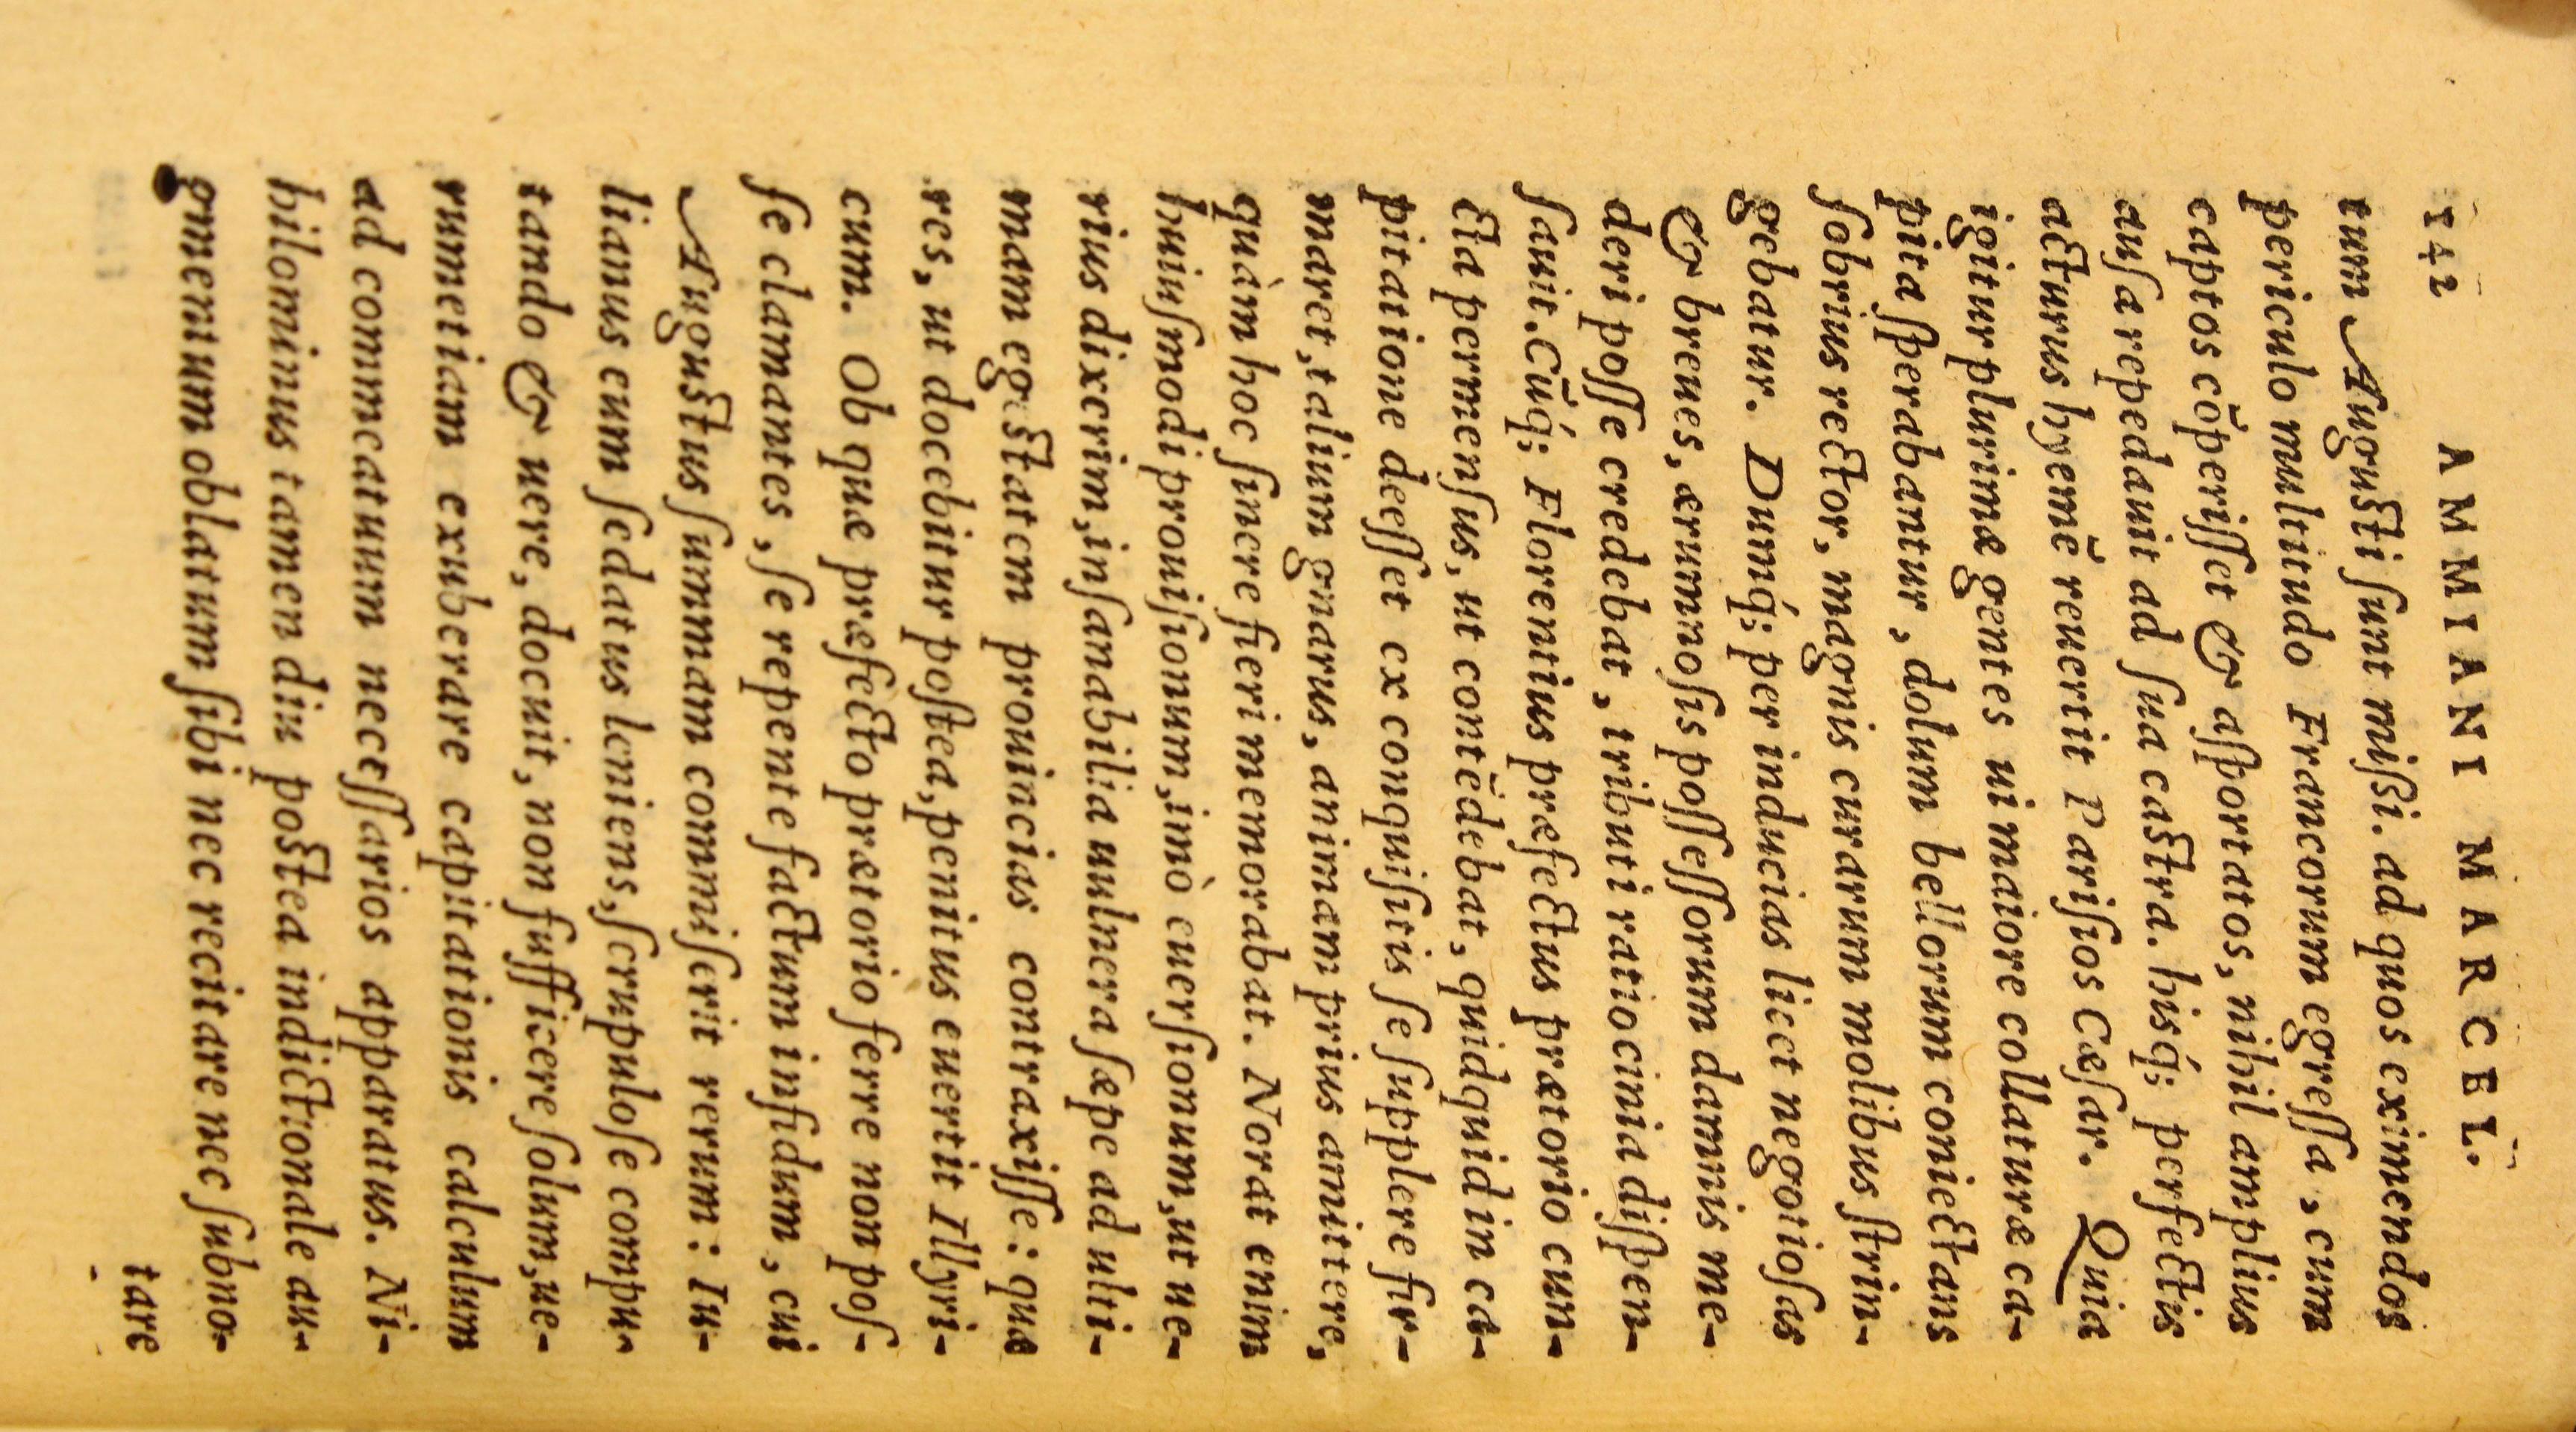 142 AMMIANI MARCEL.
tum Augusti sunt missi. ad quos eximendos
periculo multitudo Francorum egressa, cum
captos cōperisset & asportatos, nihil amplius
ausa repedauit ad sua castra. hisq́; perfectis
acturus hyemē reuertit Parisios Cæsar. Quia
igitur plurimæ gentes ui maiore collaturæ ca-
pita sperabantur, dolum bellorum coniectans
sobrius rector, magnis curarum molibus strin-
gebatur. Dumq́; per inducias licet negotiosas
& breues, ærumnosis possessorum damnis me-
deri posse credebat, tributi ratiocinia dispen-
sauit. Cūq́; Florentius præfectus prætorio cun-
cta permensus, ut contēdebat, quidquid in ca-
pitatione deesset ex conquisitis se supplere fir-
maret, talium gnarus, animam prius amittere,
quàm hoc sinere fieri memorabat. Norat enim
huiusmodi prouisionum, imò euersionum, ut ue-
rius dixerim, insanabilia uulnera sæpe ad ulti-
mam egestatem prouincias contraxisse: quæ
res, ut docebitur postea, penitus euertit Illyri-
cum. Ob quæ præfecto prætorio ferre non pos-
se clamantes, se repente factum infidum, cui
Augustus summam commiserit rerum: Iu-
lianus eum sedatius leniens, scrupulose compu-
tando & uere, docuit, non sufficere solum, ue-
rumetiam exuberare capitationis calculum
ad commeatuum necessarios apparatus. Ni-
hilominus tamen diu postea indictionale au-
gmentum oblatum sibi nec recitare nec subno-
tare